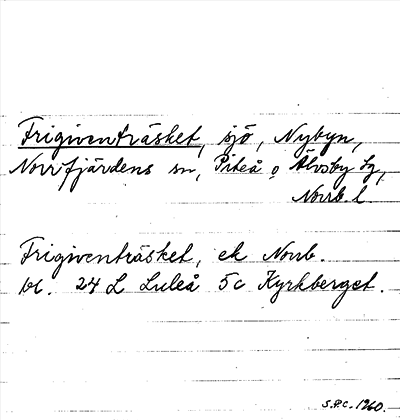 Frigiventräsket, sjö, Nybyn,
Norrfjärdens sn, Piteå o Älvsby tg,
Norrb. l.
Frigiventräsket, ek Norrb.
bl. 24 L Luleå 5c Kyrkberget.
S.P.C. 1960.